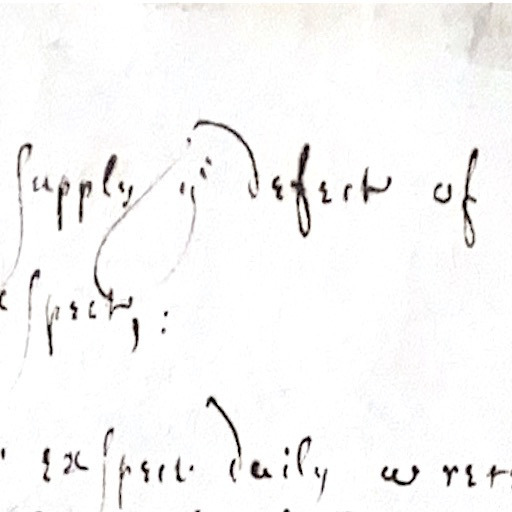 supply yͤ defect of
spect,:
expect daily